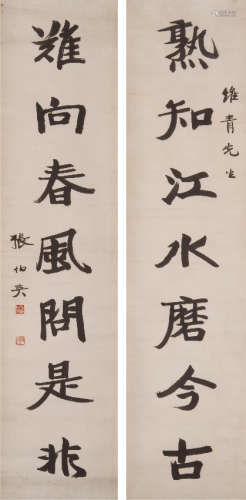 熟知江水磨今古
維青先生
難向春風問是非
張伯英